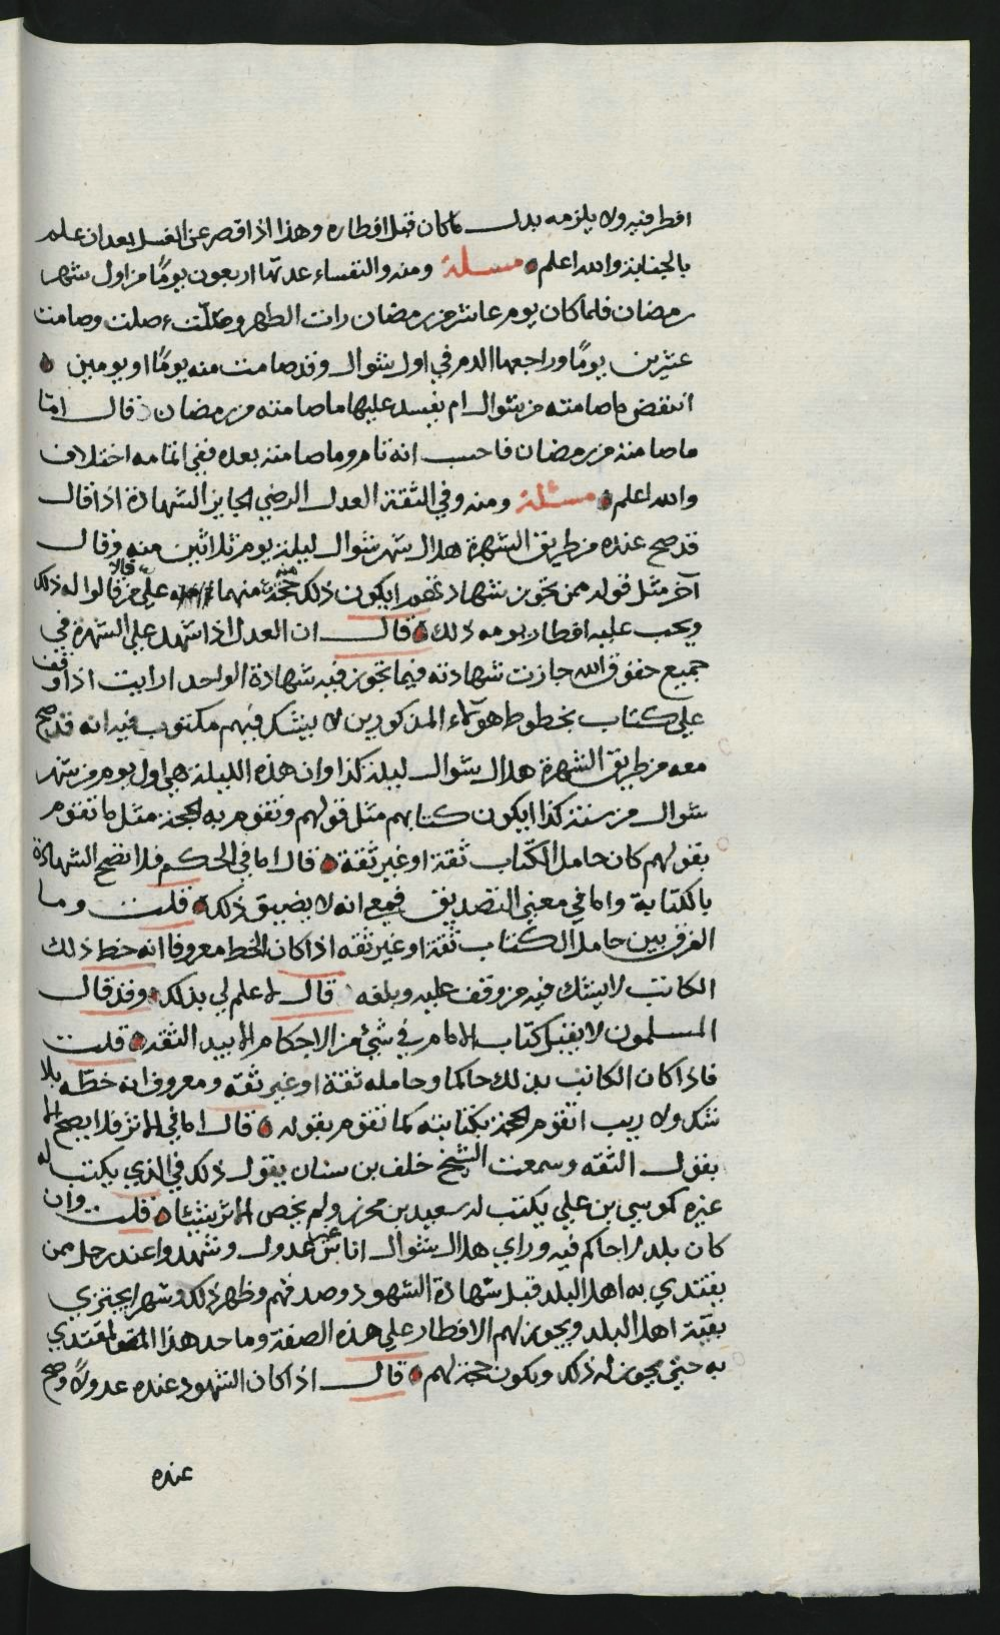 افطر فيه ولا يلزمه بدل ما كان قبل افطاره وهذا اذا قصر عن الغسل بعد ان علم
بالجنابة والله اعلم مسئلة ومنه والنفساء عدتها اربعون يوما من اول شهر
رمضان فلما كان يوم عاشر من رمضان رات الطهر وصلت وصامت
عشرين يوما وراجعها الدم في اول شوال وقد صامت منه يوما او يومين
انتقض ما صامته من شوال ام يفسد عليها ما صامته من رمضان قال اما
ما صامته من رمضان فاحسب انه تام وما صامته بعده ففي اتمامه اختلاف
والله اعلم مسئلة ومنه وفي الثقة العدل الرضي الجايز الشهادة اذا قال
قد صح عنده من طريق الشهرة هلال شهر شوال ليلة يوم ثلاثين منه وقال
آخر مثل قوله ممن تجوز شهادته ايكون ذلك حجة منهما على من قالا له ذلك
ويجب عليه افطار يومه ذلك قال ان العدل اذا شهد على الشهرة في
جميع حقوق الله جازت شهادته فيما تجوز فيه شهادة الواحد ارايت اذا وقف
على كتاب بخطوط هولاء المذكورين لا يشك فيهم مكتوب فيه انه قد صح
معه من طريق الشهرة هلال شوال ليلة كذا وان هذه الليلة هي اول يوم من شهر
شوال من سنة كذا ايكون كتابهم مثل قولهم وتقوم به الحجة مثل ما تقوم
بقولهم كان حامل الكتاب ثقة او غير ثقة قال اما في الحكم فلا تصح الشهادة
بالكتابة واما في معنى التصديق فمع انه لا يضيق ذلك قلت وما
الفرق بين حامل الكتاب ثقة او غير ثقه اذا كان الخط معروفا انه خط ذلك
الكاتب لا يشك فيه من وقف عليه وبلغه قال لا علم لي بذلك وقد قال
المسلمون لا يقبل كتاب الامام في شيء من الاحكام الا بيد الثقة قلت
فاذا كان الكاتب بذلك حاكما وحامله ثقة او غير ثقه ومعروف انه خطه بلا
شك ولا ريب اتقوم الحجة بكتابته كما تقوم بقوله قال اما في الاثر فلا يصح الا
بقول الثقه وسمعت الشيخ خلف بن سنان يقول ذلك في الذي يكتب له
غيره كموسى بن علي يكتب له سعيد بن محرز ولم يخص الاثر شيئا قلت وان
كان بلد لا حاكم فيه وراي هلال شوال اناس غير عدول وشهدوا عند رجل ممن
يقتدي به اهل البلد قبل شهادة الشهود وصدقهم وظهر ذلك وشهر ايجتزي
بقية اهل البلد ويجوز لهم الافطار على هذه الصفة وما حد هذا المقتدي
به حتى يجوز له ذلك ويكون حجة لهم قال اذا كان الشهود عنده عدولا وصح
عنده